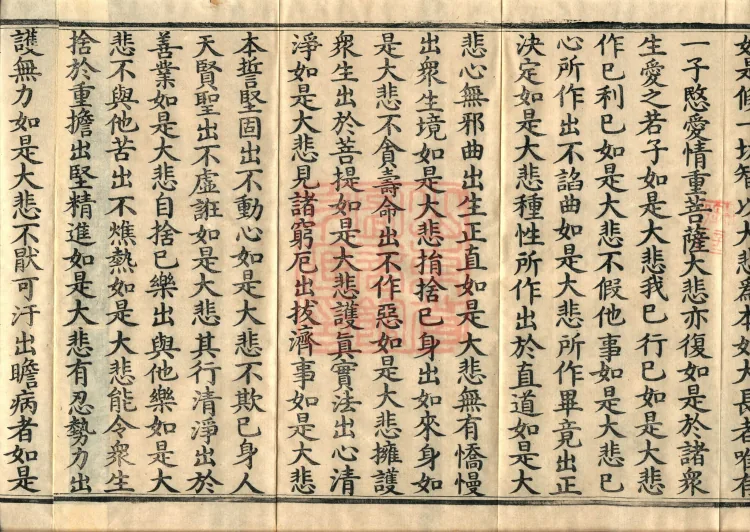 如是修一切智以大悲為本如大長者唯有
一子愍愛情重菩薩大悲亦復如是於諸衆
生愛之若子如是大悲我已行已如是大悲
作已利已如是大悲不假他事如是大悲已
心所作出不諂曲如是大悲所作畢竟出正
決定如是大悲種性所作出於直道如是大
悲心無邪曲出生正直如是大悲無有憍慢
出衆生境如是大悲捨身出如來身如
是大悲不貪壽命出不作惡如是大悲擁護
衆生出於菩提如是大悲護真實法出心清
淨如是大悲見諸窮厄出拔濟事如是大悲
本誓堅固出不動心如是大悲不欺已身人
天賢聖出不虛誑如是大悲其行清淨出於
善業如是大悲自捨已樂出與他樂如是大
悲不與他苦出不燋熱如是大悲能令衆生
捨於重擔出堅精進如是大悲有忍勢力出
護無力如是大悲不猒可汙出瞻病者如是